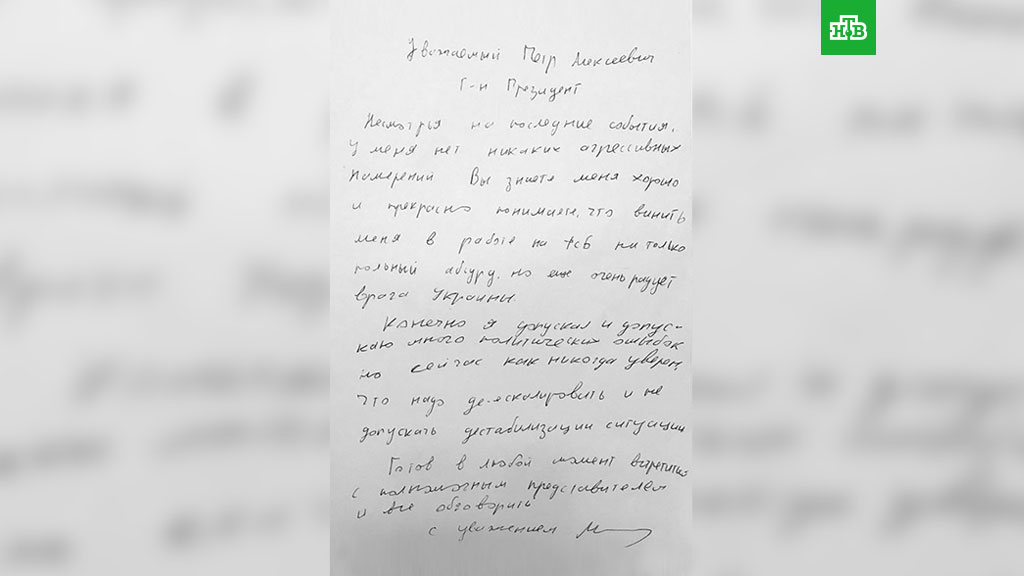 НТВ
Уважаемый Петр Алексеевич
Г-н Президент
Несмотря на последние события,
у меня нет никаких агрессивных
намерений Вы знаете меня хорошо
и прекрасно понимаем, что винить
меня в работе на ФСБ не только
полный абсурд, но еще очень радует
врага Украины
Конечно я допускал и допус-
каю много политических ошибок
но сейчас как никогда уверен,
что надо де-эскалировать и не
допускать дестабилизации ситуации
Готов в любой момент встретится
с полномочным представителем
и все обговорить
с уважением